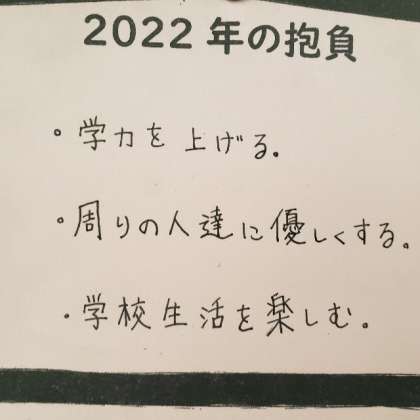 2022年の抱負
・学力を上げる。
・周りの人達に優しくする。
・学校生活を楽しむ。